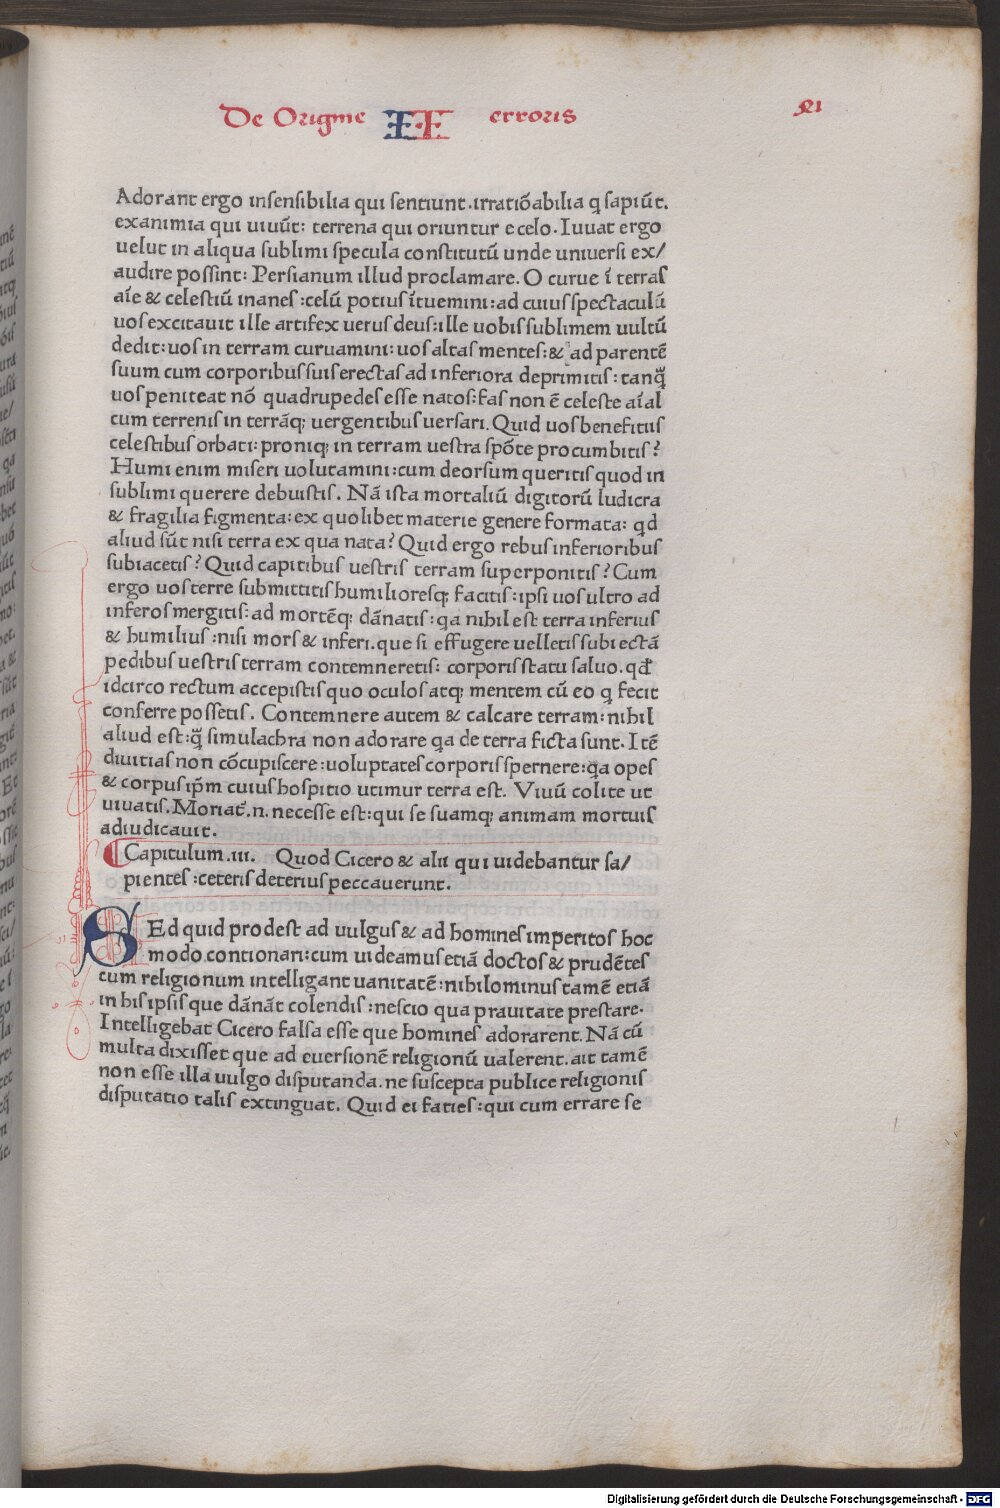 De Origine II erroris
Adorant ergo insensibilia qui sentiunt. irratiōabilia q sapiūt.
exanimia qui uiuūt: terrena qui oriuntur e celo. Iuuat ergo
uelut in aliqua sublimi specula constitutū unde uniuersi ex/
audire possint: Persianum illud proclamare. O curue ī terras
aīe & celestiū inanes: celū potius ītuemini: ad cuius spectaculū
uos excitauit ille artifex uerus deus: ille uobis sublimem uultū
dedit: uos in terram curuamini: uos altas mentes: & ad parentē
suum cum corporibus suis erectas ad inferiora deprimitis: tanq̄
uos peniteat nō quadrupedes esse natos: fas non ē celeste aīal
cum terrenis in terrāq; uergentibus uersari. Quid uos benefitiis
celestibus orbati: proniq; in terram uestra spōte procumbitis?
Humi enim miseri uolutamini: cum deorsum queritis quod in
sublimi querere debuistis. Nā ista mortaliū digitorū ludicra
& fragilia figmenta: ex quolibet materie genere formata: qd
aliud sūt nisi terra ex qua nata? Quid ergo rebus inferioribus
subiacetis? Quid capitibus uestris terram superponitis? Cum
ergo uos terre submittitis humilioresq; facitis: ipsi uos ultro ad
inferos mergitis: ad mortēq; dānatis: qa nihil est terra inferius
& humilius: nisi mors & inferi. que si effugere uelletis subiectā
pedibus uestris terram contemneretis: corporis statu saluo. qđ
idcirco rectum accepistis quo oculos atq; mentem cū eo q fecit
conferre possetis. Contemnere autem & calcare terram: nihil
aliud est: q̄ simulachra non adorare qa de terra ficta sunt. Itē
diuitias non cōcupiscere: uoluptates corporis spernere: qa opes
& corpus ipm cuius hospitio utimur terra est. Viuū colite ut
uiuatis. Moriat̄. n. necesse est: qui se suamq; animam mortuis
adiudicauit.
Capitulum. iii. Quod Cicero & alii qui uidebantur sa/
pientes: ceteris deterius peccauerunt.
SEd quid prodest ad uulgus & ad homines imperitos hoc
modo contionari: cum uideamus etiā doctos & prudētes
cum religionum intelligant uanitatē: nihilominus tamē etiā
in his ipsis que dānāt colendis: nescio qua prauitate prestare.
Intelligebat Cicero falsa esse que homines adorarent. Nā cū
multa dixisset que ad euersionē religionū ualerent. ait tamē
non esse illa uulgo disputanda. ne suscepta publice religionis
disputatio talis extinguat. Quid ei faties: qui cum errare se
Digitalisierung gefördert durch die Deutsche Forschungsgemeinschaft - DFG